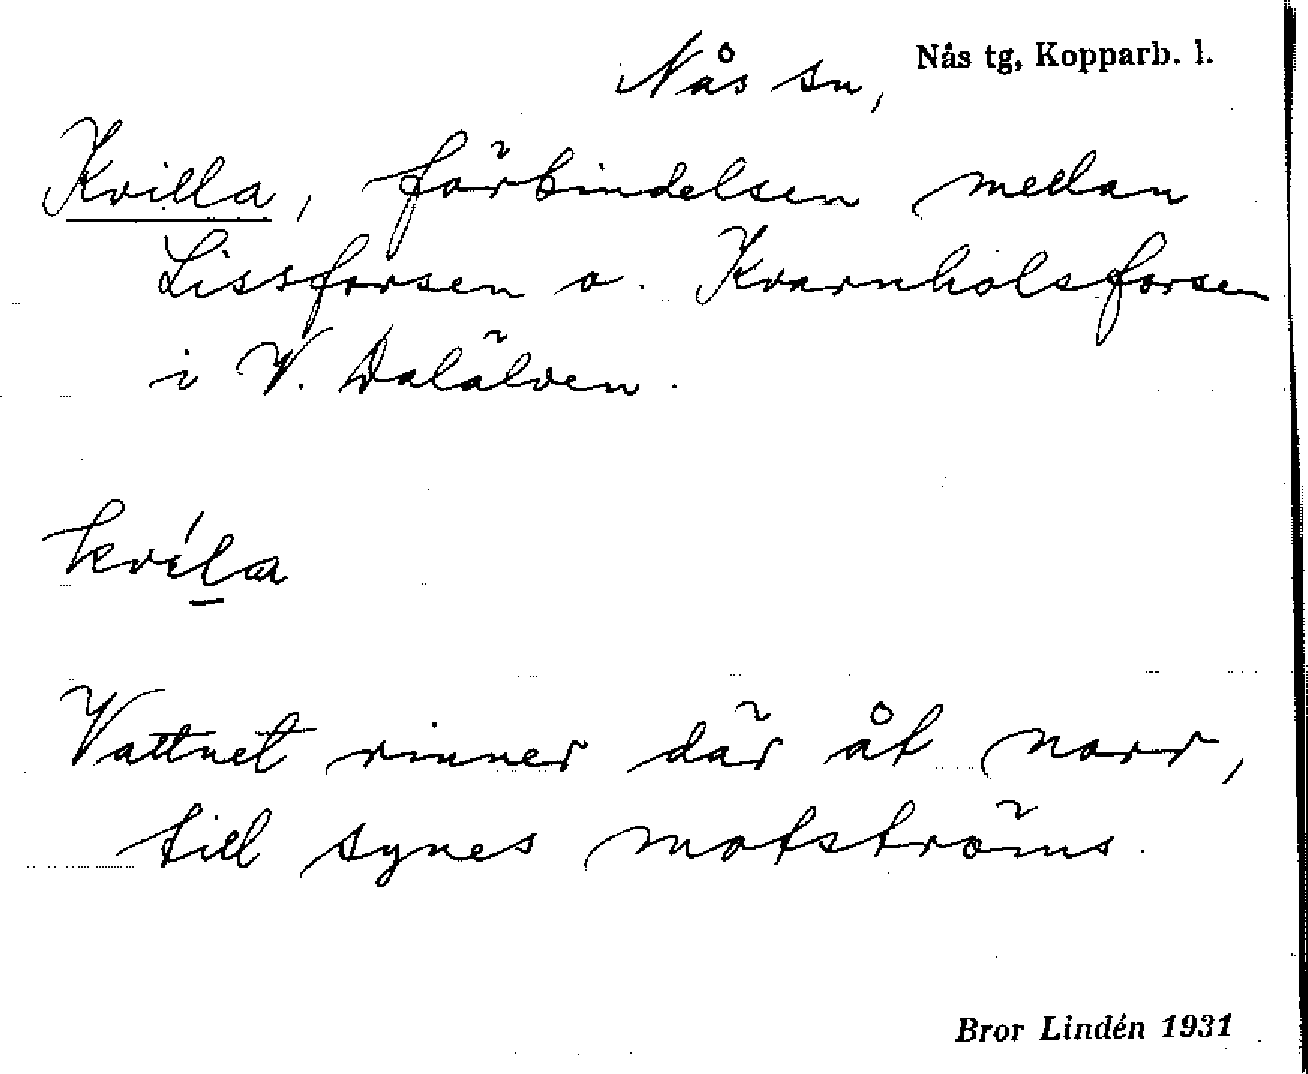 Nås sn, Nås tg, Kopparb. l.
Kvilla, förbindelsen medan
Lissforsen o. Kvarnholsforsen
i V. Dalälven.
kvíla
Vattnet rinner där åt norr,
till synes motströms.
Bror Lindén 1931